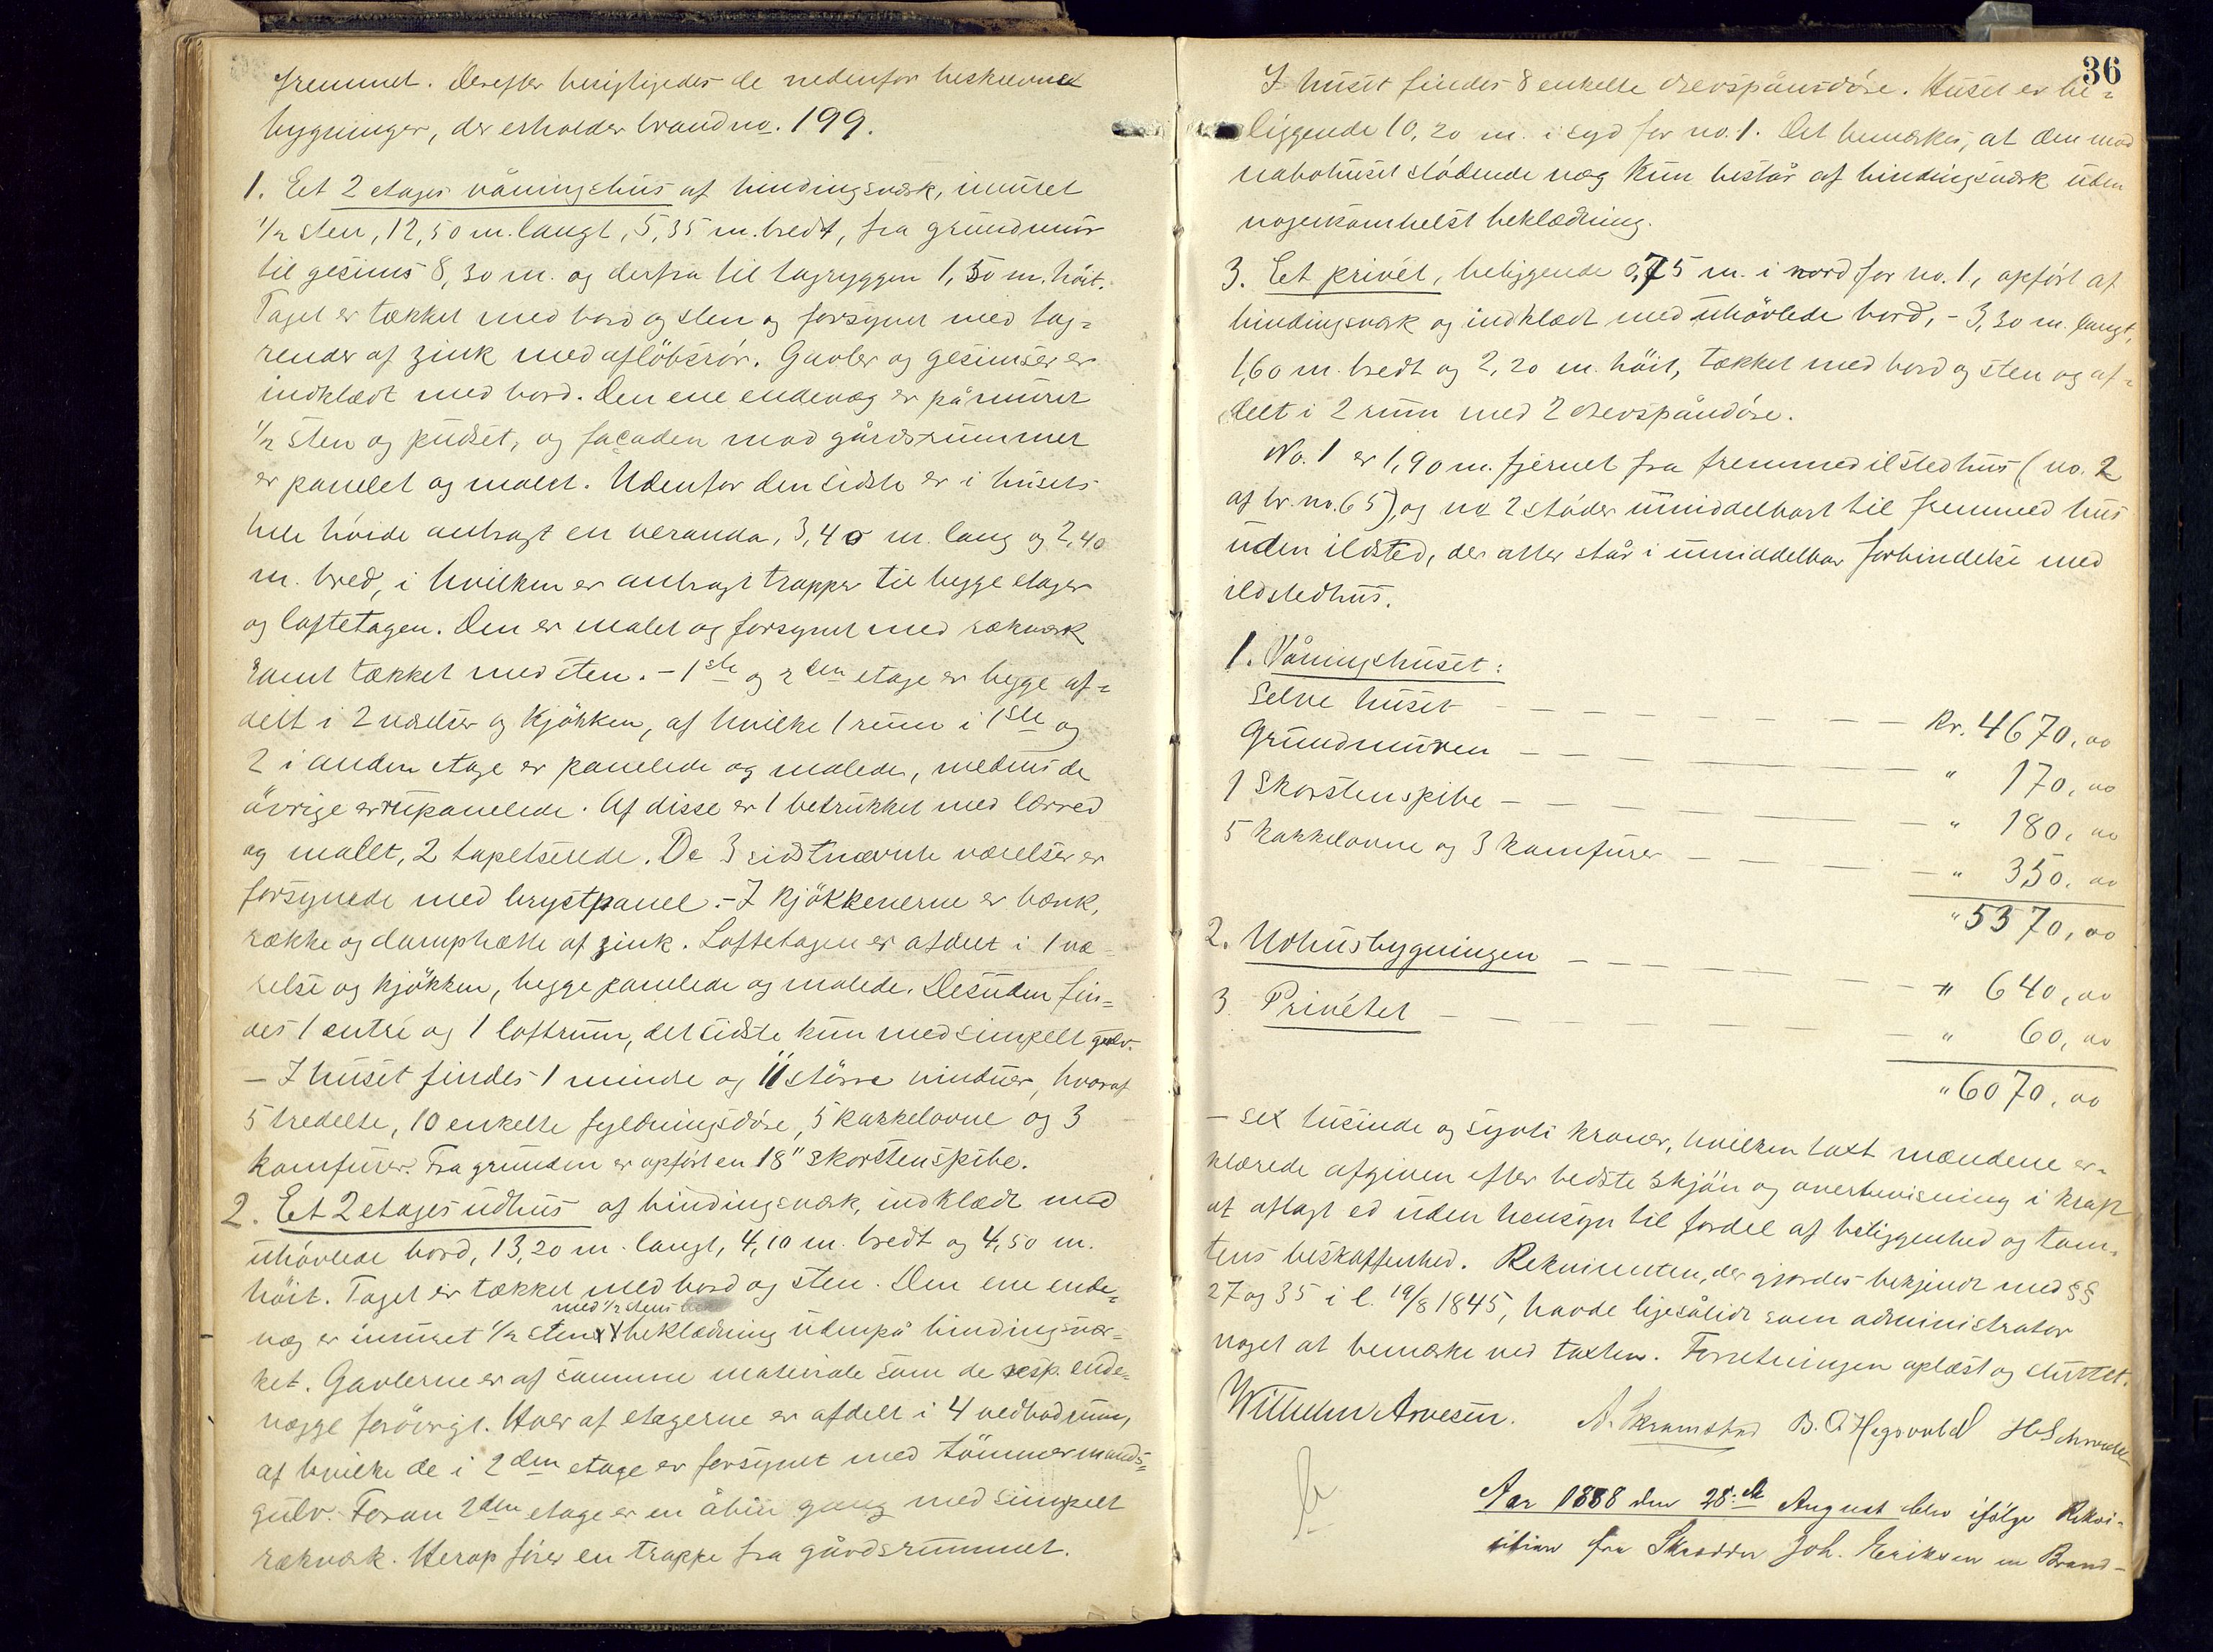 fremmet. Derefter besigtigedes de nedenfor beskrevne
bygninger, der erholder brandno. 199.
1. Eet 2 etages våningshus af bindingsværk, imuret
1/2 sten, 12,50 m. langt, 5,35 m. bredt, fra grundmur
til gesims 8,30 m. og derfra til tagryggen 1,50 m. höit.
Taget er tækket med bord og sten og forsynet med tag=
render af zink med aflöbsrör. Gavler og gesimser er
indklædt med bord. Den ene endevæg er påmuret
1/2 sten og pudset, og façaden mod gårdsrummet
er panelet og malet. Udenfor den sidste er i husets
hele höide anbragt en veranda, 3,40 m. lang og 2,40
m. bred, i hvilken er anbragt trapper til begge etager
og loftetagen. Den er malet og forsynet med rækværk
samt tækket med sten. - 1ste og 2den etage er begge af=
delt i 2 værelser og kjökken, af hvilke 1 rum i 1ste og
2 i anden etage er panelede og malede, medens de
övrige er upanelede. Af disse er 1 betrukket med lærred
og malet, 2 tapetserede. De 3 sidstnævnte værelser er
forsynede med brystpanel. - I kjökkenerne er bænk,
række og damphætte af zink. Loftetagen er afdelt i 1 væ-
relse og kjökken, begge panelede og malede. Desuden fin=
des 1 entré og 1 loftrum, det sidste kun med simpelt gulv.
- I huset findes 1 mindre og 11 större vinduer, hvoraf
5 tredelte, 10 enkelte fyldningsdöre, 5 kakkelovne og 3
komfurer. Fra grunden er opfört en 18" skorstenspibe.
2. Et 2 etages udhus af bindingsværk, indklædt med
uhövlede bord, 13,20 m. langt, 4,10 m. bredt og 4,50 m.
höit. Taget er tækket med bord og sten. Den ene ende=
med 1/2 stens
væg er imuret 1/2 sten beklædning udenpå bindingsvær=
ket. Gavlerne er af samme materiale som de resp. ende=
vægge forövrigt. Hver af etagerne er afdelt i 4 vedbodrum,
af hvilke de i 2den etage er forsynet med tömmermands=
gulv. Foran 2den etage er en åben gang med simpelt
rækværk. Herop förer en trappe fra gårdsrummet.
36
I huset findes 8 enkelte drevspånsdöre. Huset er be=
liggende 10,20 m. i syd for no. 1. Det bemærkes, at den mod
nabohuset stödende væg kun består af bindingsværk uden
nogensomhelst beklædning.
3. Et privét, beliggende 0,75 m. i nord for no. 1, opfört af
bindingsværk og indklædt med uhövlede bord, - 3,30 m. langt,
1,60 m. bredt og 2,20 m. höit, tækket med bord og sten og af=
delt i 2 rum med 2 drevspåndöre.
No. 1 er 1,90 m. fjernet fra fremmed ilstedhus (no. 2
af br. no. 65), og no 2 stöder umiddelbart til fremmed hus
uden ildsted, der atter står i umiddelbar forbindelse med
ildstedhus.
1. Våningshuset:
Selve huset - - - Kr. 4670,00
Grundmuren - - - " 170,00
1 Skorstenspibe - - - " 180,00
5 kakkelovne og 3 komfurer - - - " 350,00
" 5370,00
2. Udhusbygningen - - - " 640,00
3. Privétet - - - " 60,00
" 6070,00
- sex tusinde og sytti kroner, hvilken taxt mændene er-
klærede afgiven efter bedste skjön og overbevisning i kraft
af aflagt ed uden hensyn til fordel af beliggenhed og tom-
tens beskaffenhed. Rekvirenten, der gjordes bekjendt med §§
27 og 35 i l. 19/8 1845, havde ligesålidt som administrator
noget at bemærke ved taxten. Forretningen oplæst og sluttet.
Wilhelm Arvesen. A. Skramstad B. O. Hagsvold H Schrøder
Aar 1888 den 28:de August blev ifölge Rekvi-
sition fra Skrædder Joh. Eriksen en Brand-